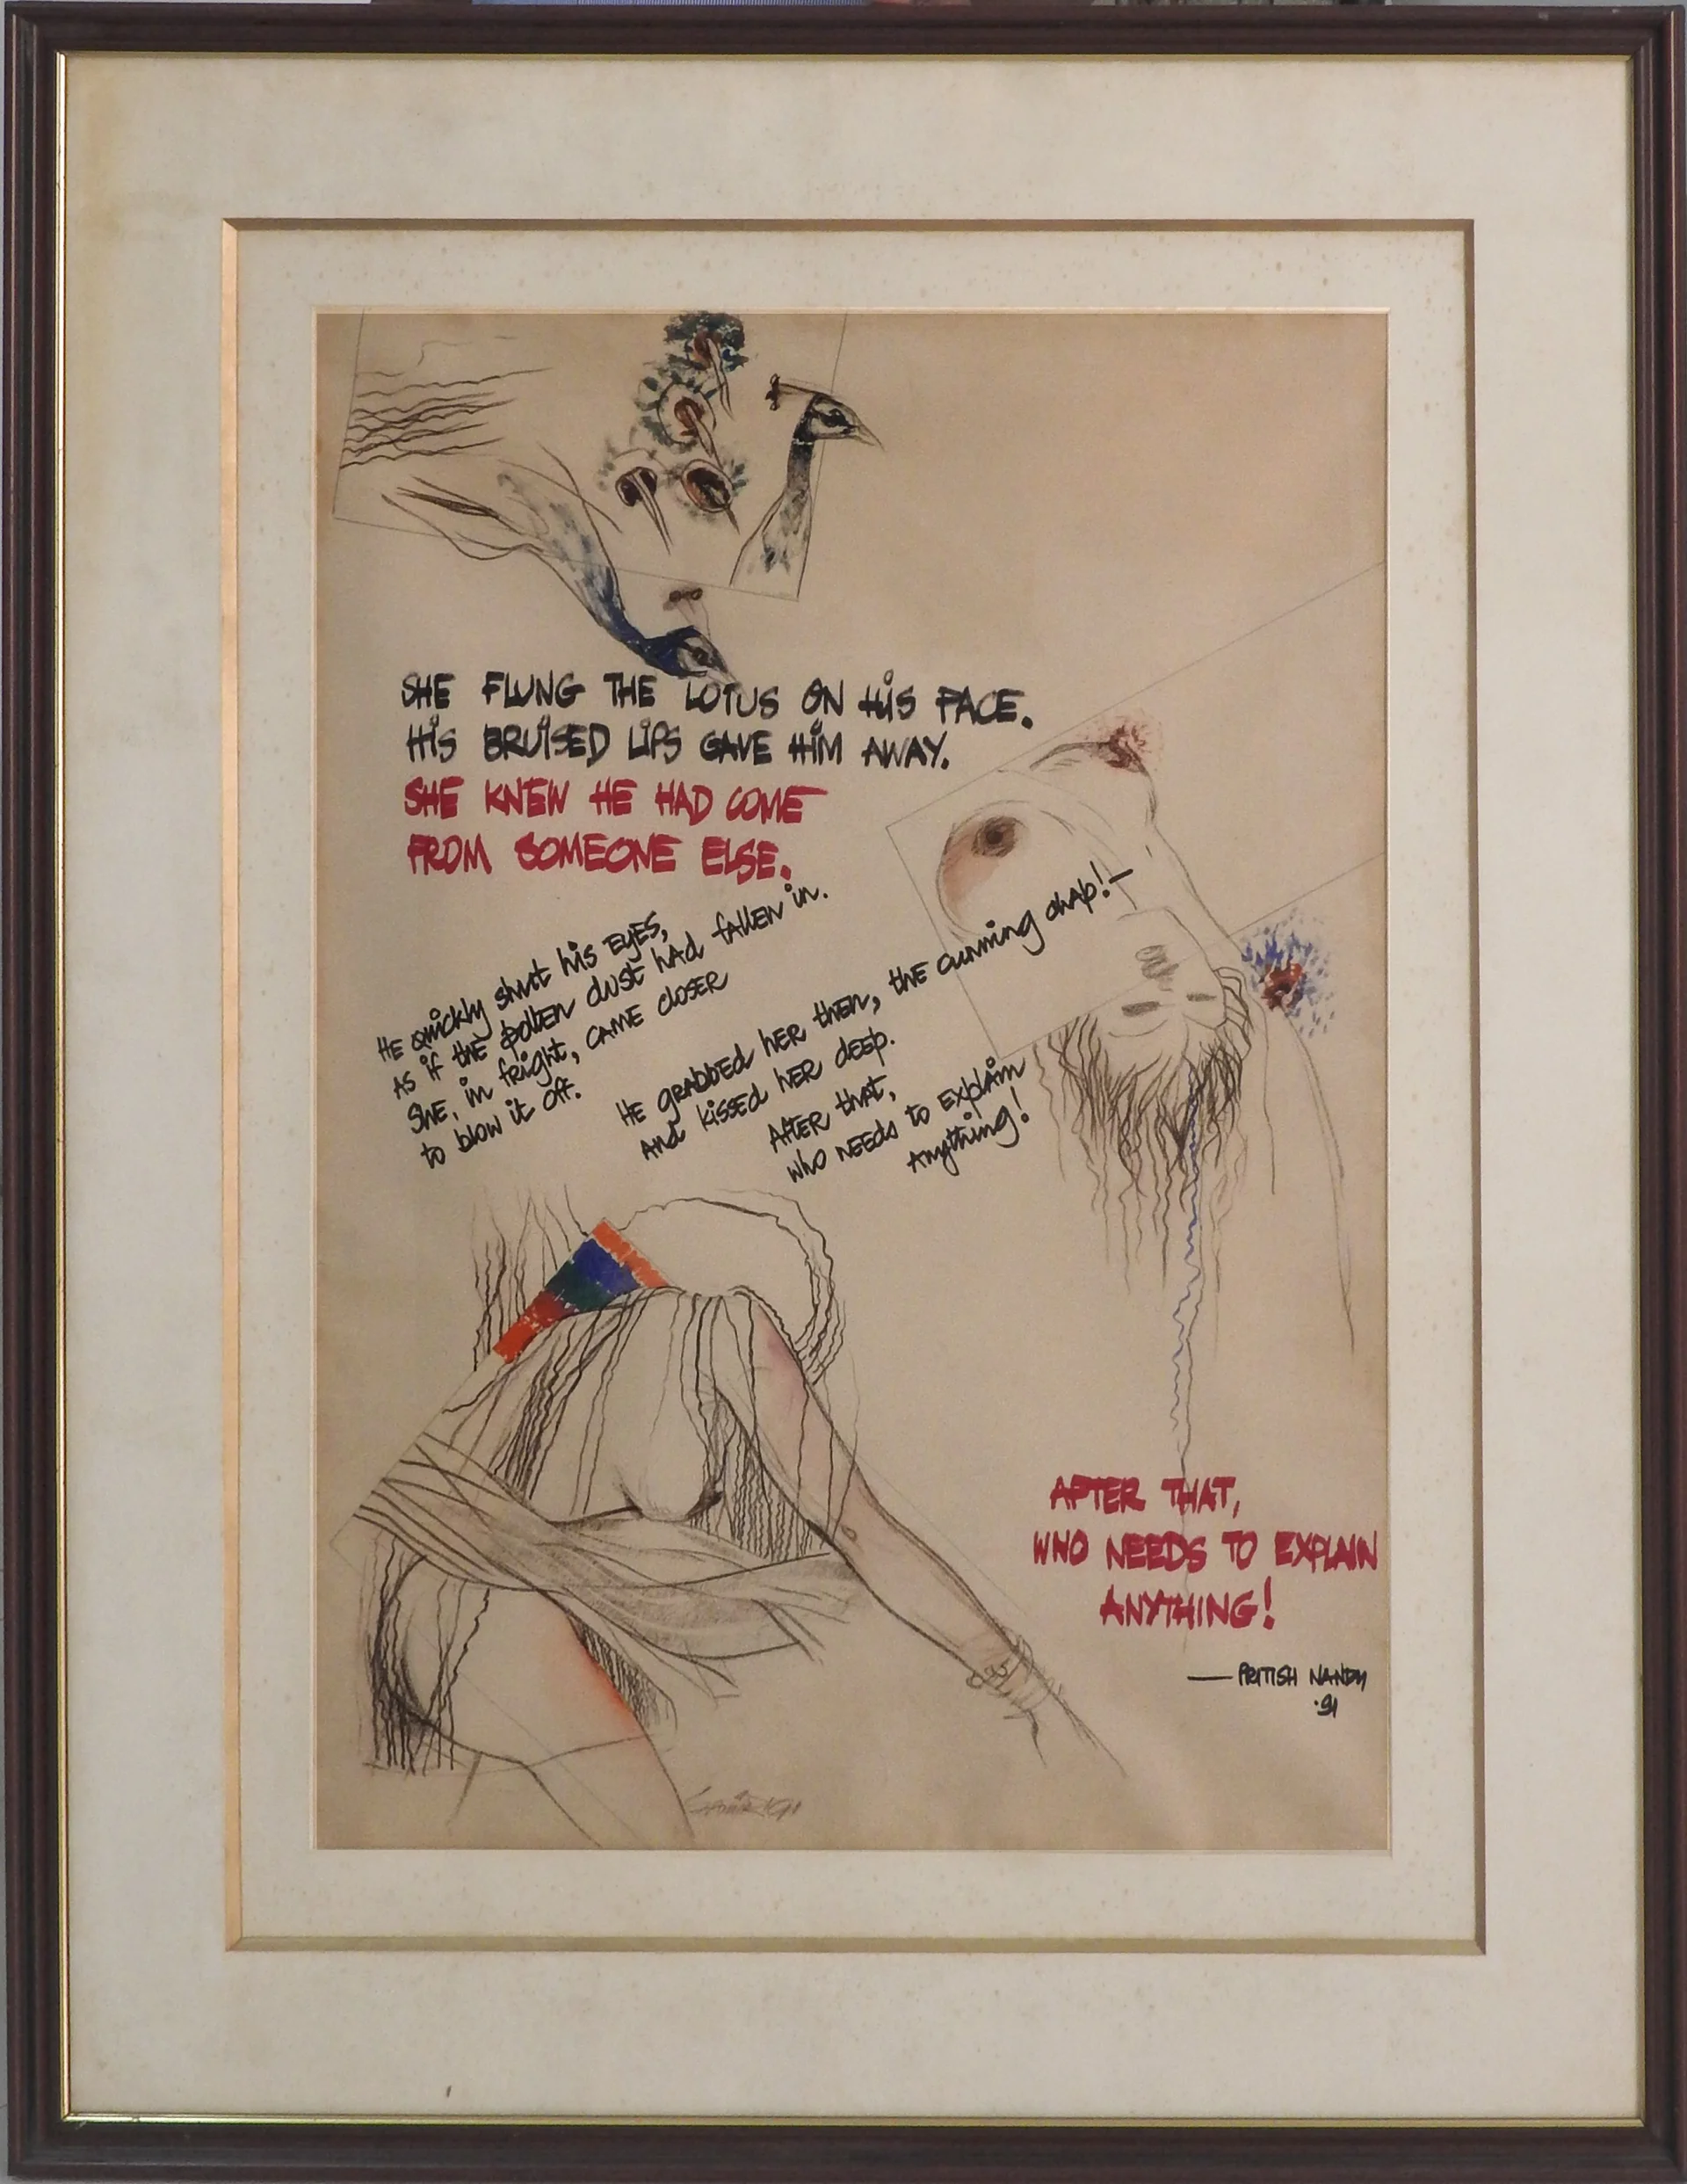 SHE FLUNG THE LOTUS ON HIS FACE.
HIS BRUISED LIPS GAVE HIM AWAY.
SHE KNEW HE HAD COME
FROM SOMEONE ELSE.
HE quickly shut his EYES,
AS if tHE pollEN dust hAd fAllEN in.
SHE, in fright, CAME closER
to blow it off.
HE gRAbbEd HER tHEN, tHE cunning chAp!—
ANd kissEd HER dEEp.
AftER thAt,
who NEEds to ExplAiN
ANything!
AFTER THAT,
WHO NEEDS TO EXPLAIN
ANYTHING!
— PRITISH NANDY
'91